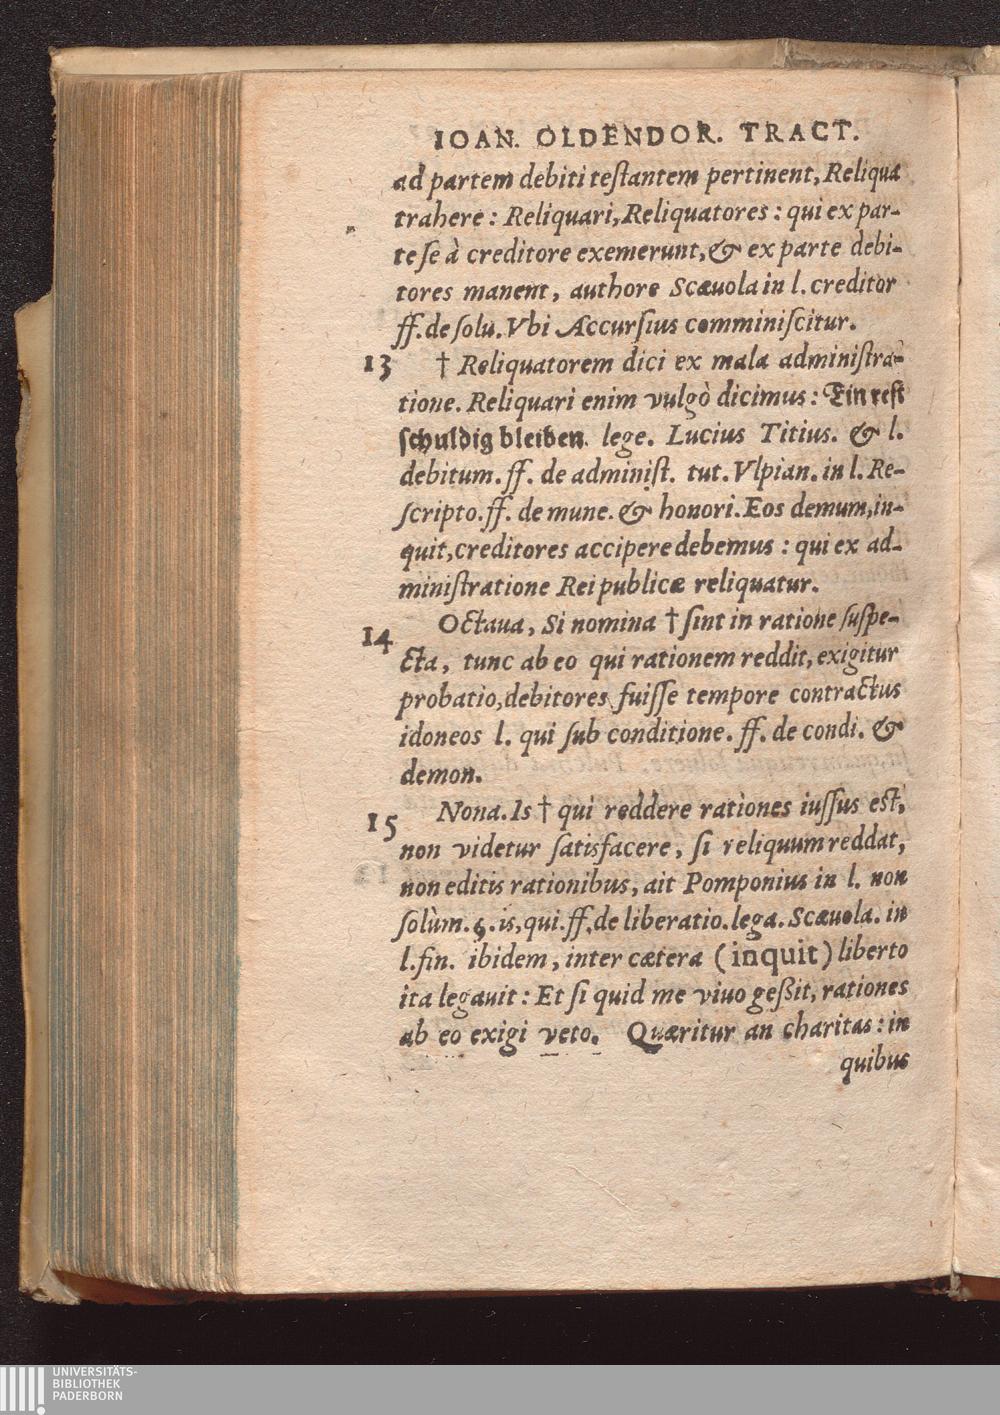 IOAN. OLDENDOR. TRACT.
ad partem debiti testantem pertinent, Reliqua
trahere: Reliquari, Reliquatores: qui ex par-
te se à creditore exemerunt, & ex parte debi-
tores manent, authore Scæuola in l. creditor
ff. de solu. Vbi Accursius comminiscitur.
13 † Reliquatorem dici ex mala administra-
tione. Reliquari enim vulgò dicimus: Ein rest
schuldig bleiben lege. Lucius Titius. & l.
debitum. ff. de administ. tut. Vlpian. in l. Re-
scripto. ff. de mune. & honori. Eos demum, in-
quit, creditores accipere debemus: qui ex ad-
ministratione Reipublicæ reliquatur.
14 Octaua, Si nomina † sint in ratione suspe-
cta, tunc ab eo qui rationem reddit, exigitur
probatio, debitores fuisse tempore contractus
idoneos l. qui sub conditione. ff. de condi. &
demon.
15 Nona. Is † qui reddere rationes iussus est,
non videtur satisfacere, si reliquum reddat,
non editis rationibus, ait Pomponius in l. non
solùm. §. is, qui. ff. de liberatio. lega. Scæuola. in
l. fin. ibidem, inter cætera (inquit) liberto
ita legauit: Et si quid me viuo geßit, rationes
ab eo exigi veto. Quæritur an charitas: in
quibus
UNIVERSITÄTS-
BIBLIOTHEK
PADERBORN